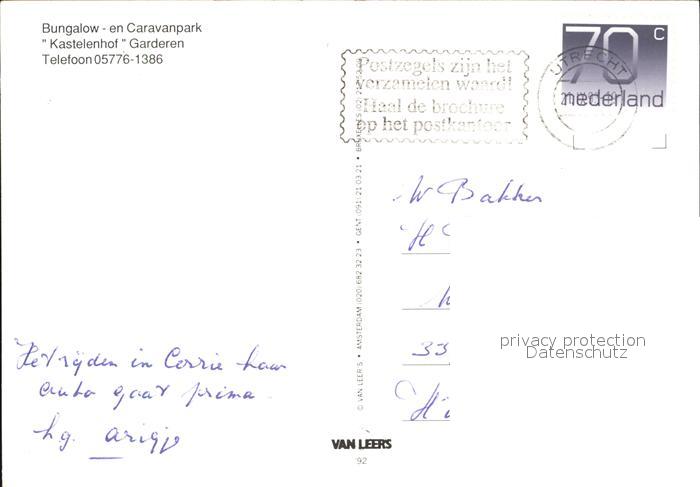 Bungalow - en Caravanpark
" Kastelenhof " Garderen
Telefoon 05776-1386
Postzegels zijn het
verzamelen waard!
Haal de brochure
op het postkantoor
UTRECHT
70 c
nederland
© VAN LEER'S • AMSTERDAM (020) 682 32 23 • GENT (091) 21 03 21 •
W Bakker
H
33
Hi
privacy protection
Datenschutz
Het rijden in Corrie haar
auto gaat prima.
hg. Arigje
VAN LEERS
92